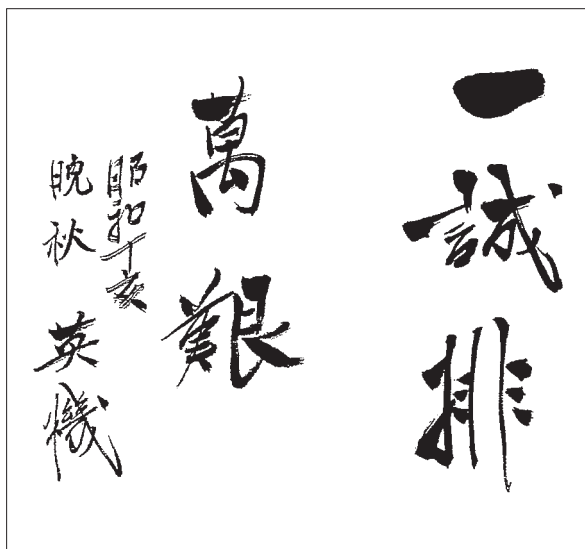 一誠排
萬艱
昭和丁亥
晩秋 英機